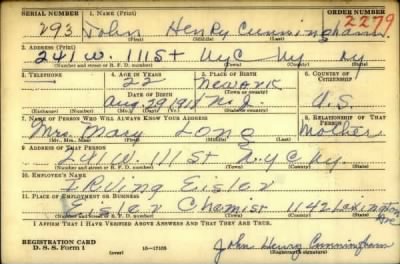 SERIAL NUMBER 1. NAME (Print) ORDER NUMBER
293 John Henry Cunningham 2279
(First) (Middle) (Last)
2. ADDRESS (Print)
241 W. 111 St NYC NY NY
(Number and street or R. F. D. number) (Town) (County) (State)
3. TELEPHONE 4. AGE IN YEARS 5. PLACE OF BIRTH 6. COUNTRY OF CITIZENSHIP
22 Newark
DATE OF BIRTH (Town or county)
Aug. 29 1918 N. J. U.S.
(Exchange) (Number) (Mo.) (Day) (Yr.) (State or country)
7. NAME OF PERSON WHO WILL ALWAYS KNOW YOUR ADDRESS 8. RELATIONSHIP OF THAT PERSON
Mrs. Mary Long Mother
(Mr., Mrs., Miss) (First) (Middle) (Last)
9. ADDRESS OF THAT PERSON
241 W. 111 St N.Y.C Ny.
(Number and street or R. F. D. number) (Town) (County) (State)
10. EMPLOYER'S NAME
IRVING Eisler
11. PLACE OF EMPLOYMENT OR BUSINESS
Eisler Chemist 1142 Lexington Ave
(Number and street or R. F. D. number) (Town) (County) (State)
I AFFIRM THAT I HAVE VERIFIED ABOVE ANSWERS AND THAT THEY ARE TRUE.
REGISTRATION CARD
D. S. S. Form 1 (over) 16—17105 John Henry Cunningham
(Registrant's signature)